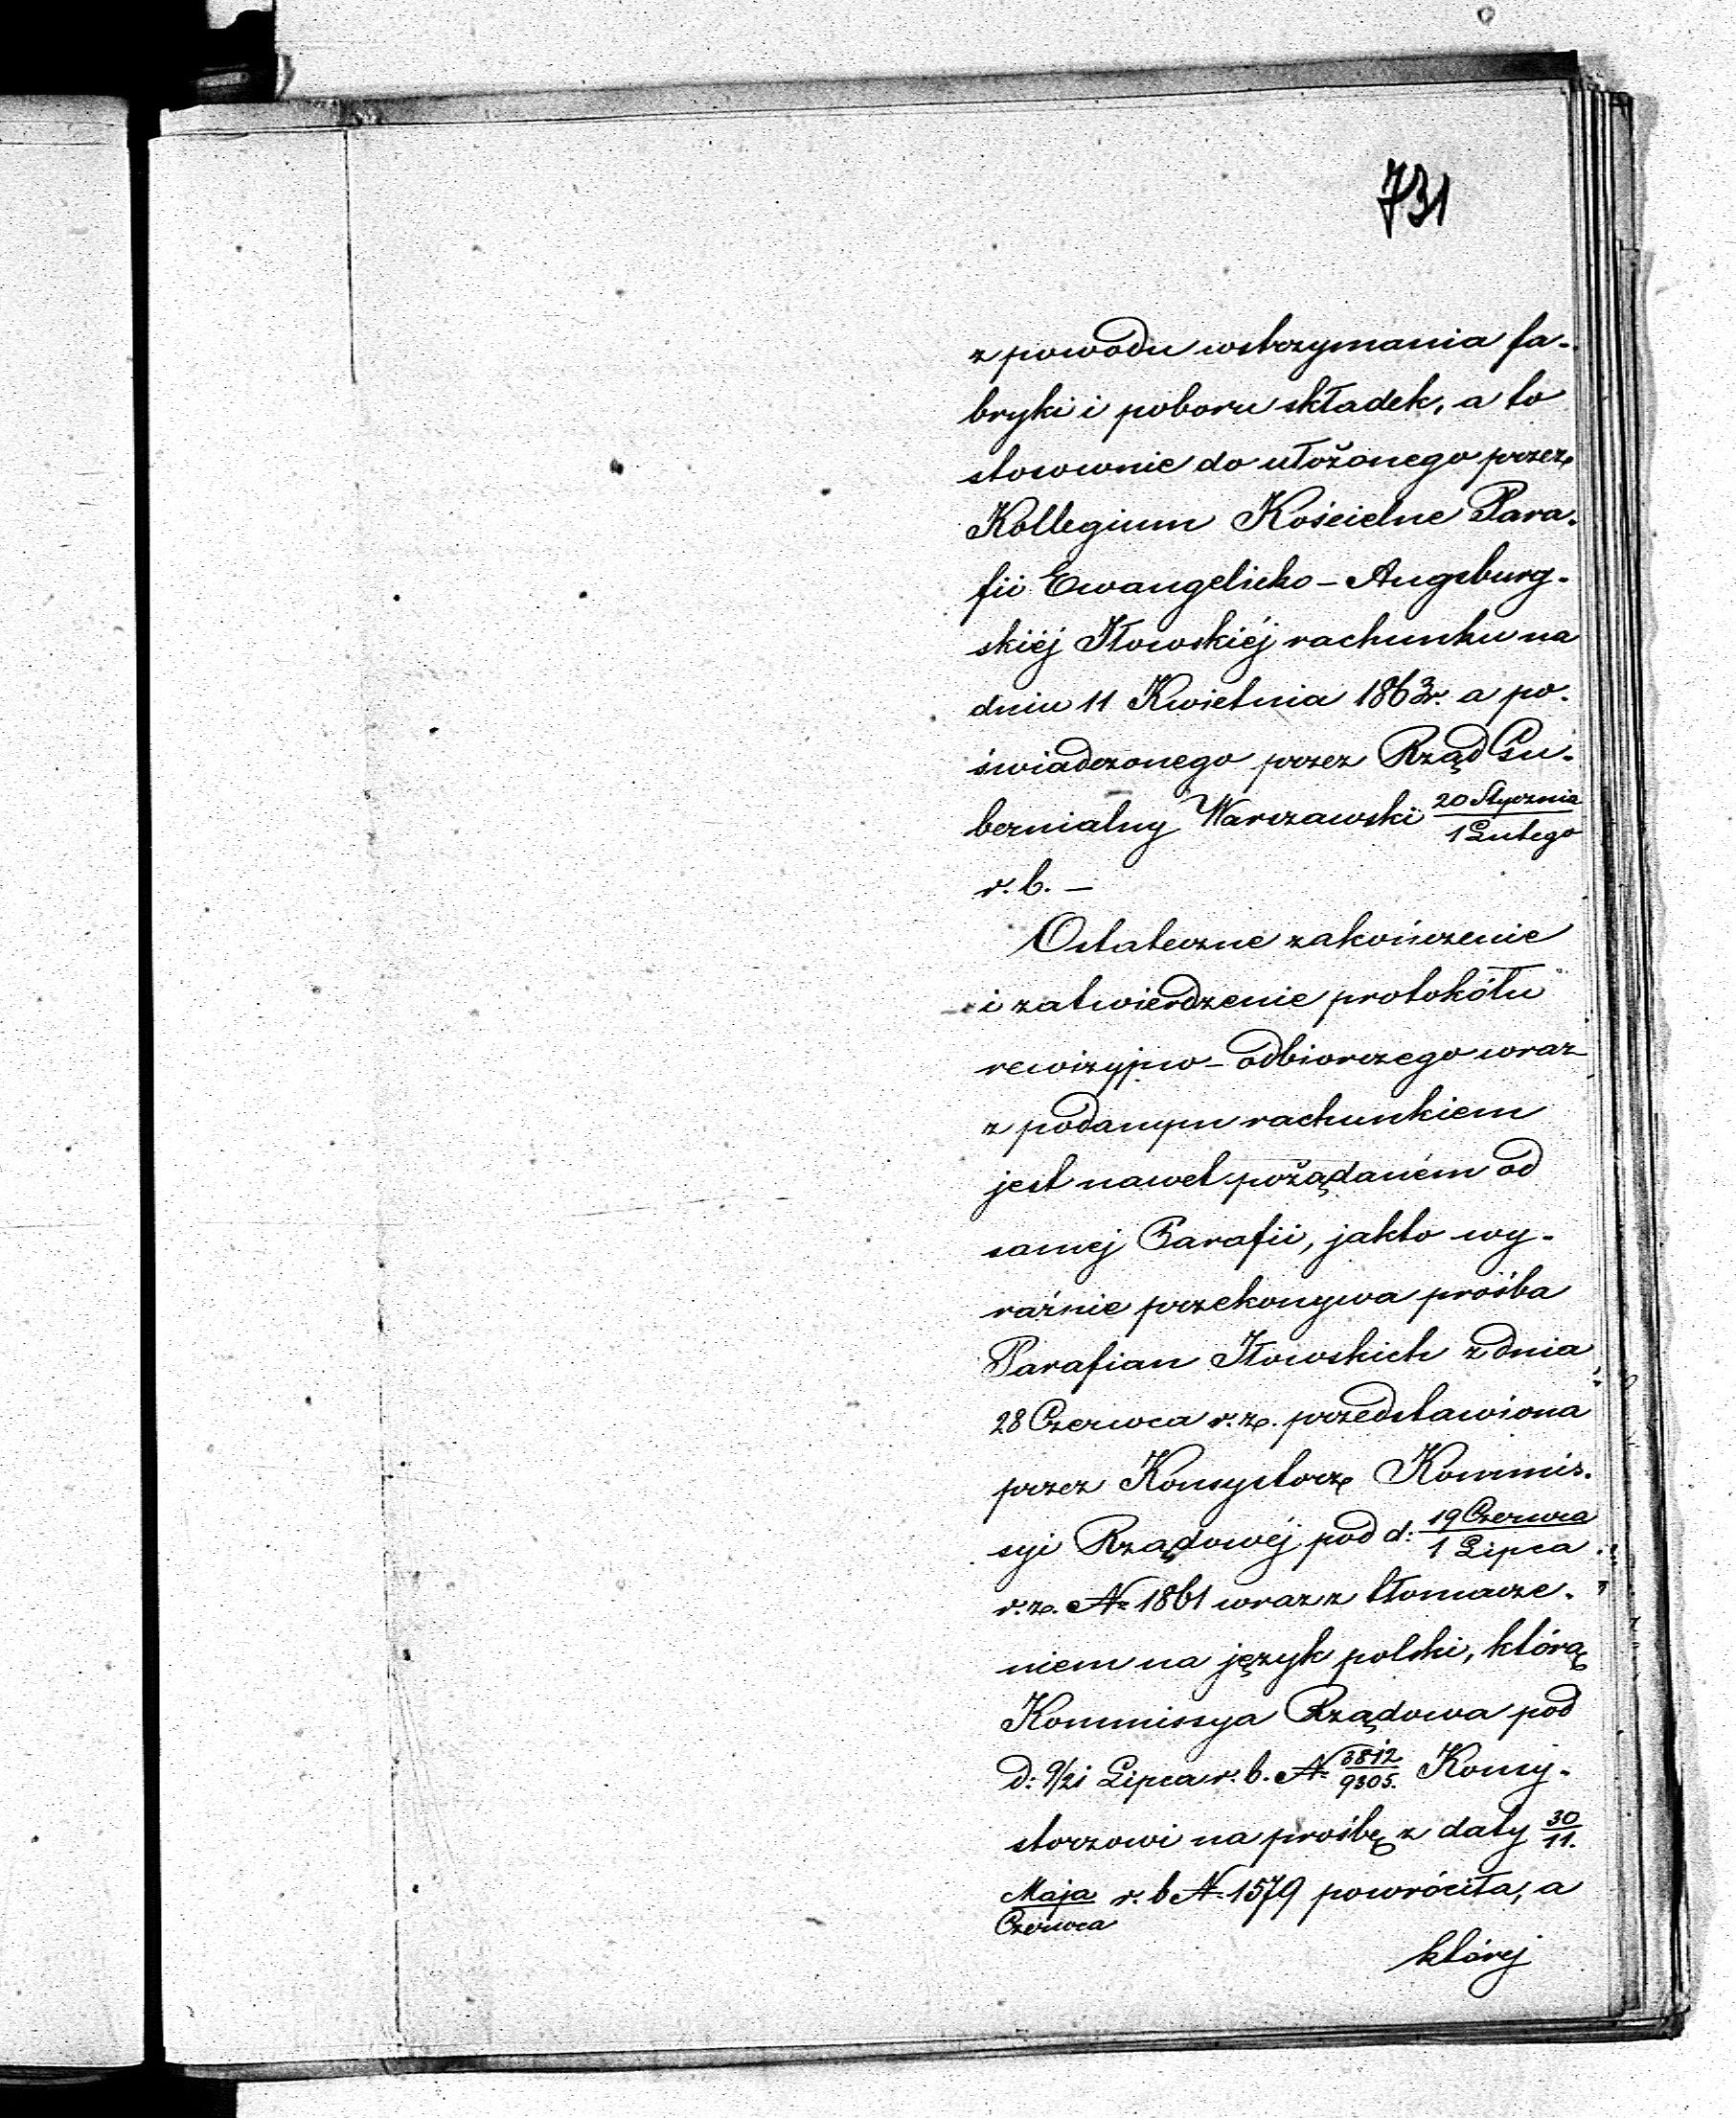 731
z powodu wstrzymania fa-
bryki i poboru składek, a to
stosownie do ułożonego przez
Kollegium Kościelne Para-
fii Ewangelicko-Augsburg-
skiéj Iłowskiéj rachunku na
dniu 11 Kwietnia 1863r. a po-
świadczonego przez Rząd Gu-
bernialny Warszawski 20 Stycznia/1 Lutego
r. b. —
Ostateczne zakończenie
i zatwierdzenie protokółu
rewizyjno-odbiorczego wraz
z podanym rachunkiem
jest nawet pożądaném od
samej Parafii, jakto wy-
raźnie przekonywa prośba
Parafian Iłowskich z dnia
28 Czerwca r. z. przedstawiona
przez Konsystorz Kommis-
syi Rządowéj pod d: 19 Czerwca/1 Lipca
r. z. № 1861 wraz z tłomacze-
niem na język polski, którą
Kommissya Rządowa pod
d: 9/21 Lipca r. b. № 3812/9305. Konsy-
storzowi na prośbę z daty 30/11.
Maja/Czerwca r. b № 1579 powróciła, a
któréj